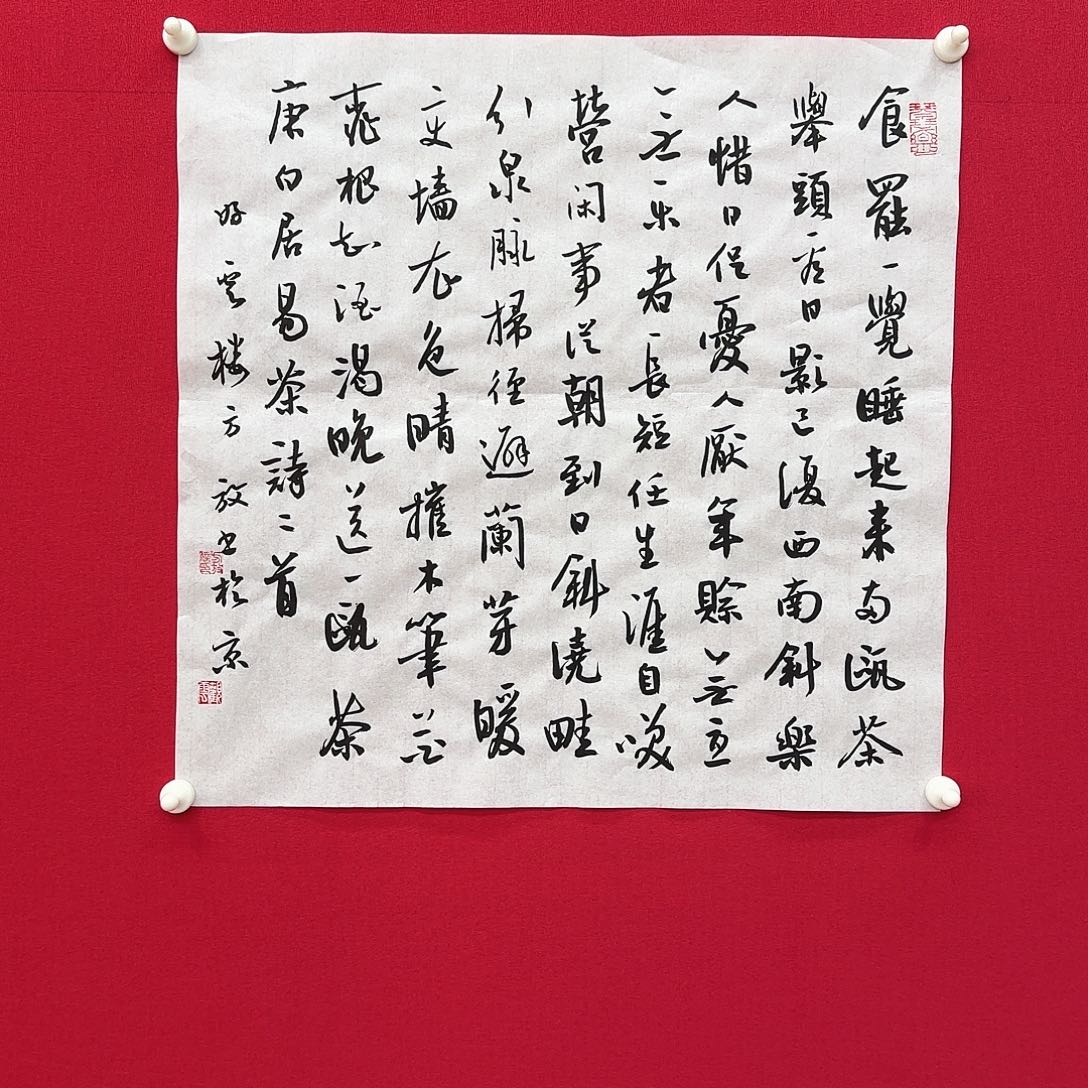 食罷一覺睡起来兩甌茶
舉頭看日影已復西南斜樂
人惜日促憂人厭年賒无憂
无乐者長短任生涯自咲
營闲事従朝到日斜澆畦
引泉脉掃徑避蘭芽暖
变墙衣色晴摧木筆花
桃根知酒渴晚送一甌茶
唐白居易茶詩二首
好雲楼方放书於京